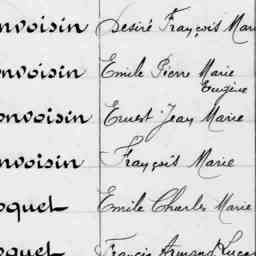 nvoisin Desiré François Mari
nvoisin Emile Pierre Marie
Eugène
onvoisin Ernest Jean Marie
nvoisin François Marie
oquet Emile Charles Marie
oquet Francis Armand Lucas